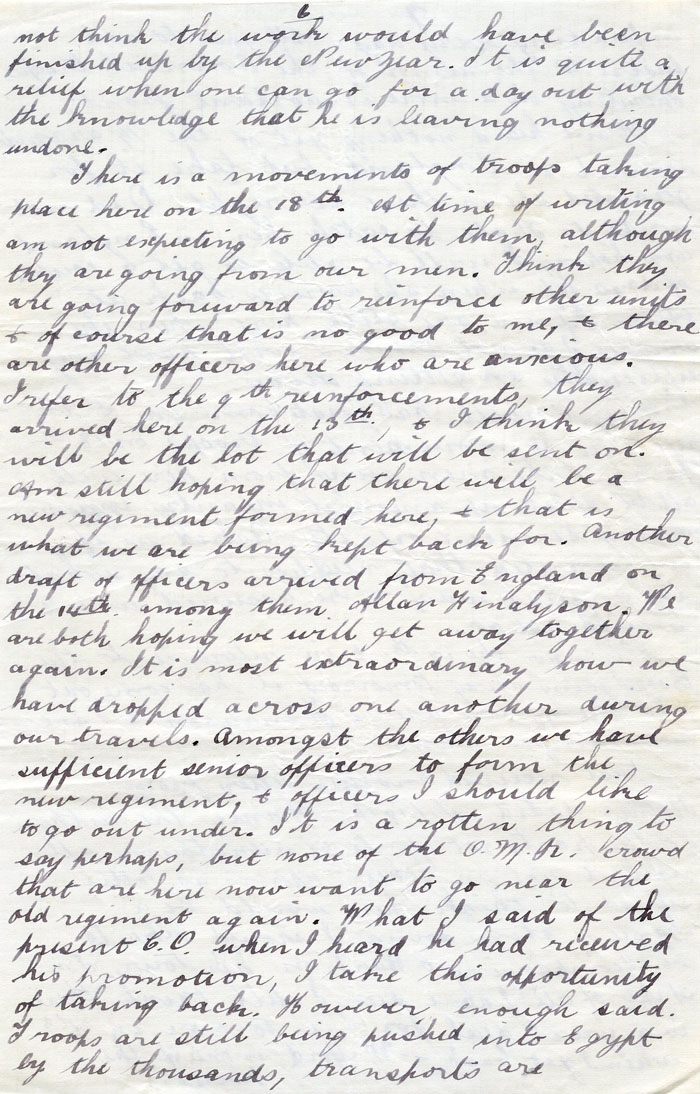 6
not think the work would have been
finished up by the New Year. It is quite a
relief when one can go for a day out with
the knowledge that he is leaving nothing
undone.
There is a movements of troops taking
place here on the 18th. At time of writing
am not expecting to go with them, although
they are going from our men. Think they
are going forward to reinforce other units
& of course that is no good to me, & there
are other officers here who are anxious.
I refer to the 9th reinforcements, they
arrived here on the 13th, & I think they
will be the lot that will be sent on.
Am still hoping that there will be a
new regiment formed here, & that is
what we are being kept back for. Another
draft of officers arrived from England on
the 14th. among them Allan Finalyson. We
are both hoping we will get away together
again. It is most extraordinary how we
have dropped across one another during
our travels. Amongst the others we have
sufficient senior officers to form the
new regiment, & officers I should like
to go out under. It is a rotten thing to
say perhaps, but none of the O.M.R. crowd
that are here now want to go near the
old regiment again. What I said of the
present C.O. when I heard he had received
his promotion, I take this opportunity
of taking back. However, enough said.
Troops are still being pushed into Egypt
by the thousands, transports are